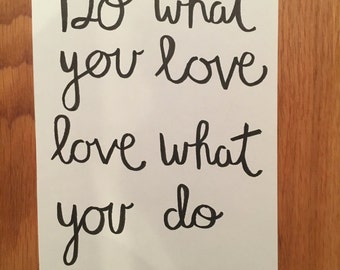 Do what
you love
love what
you do